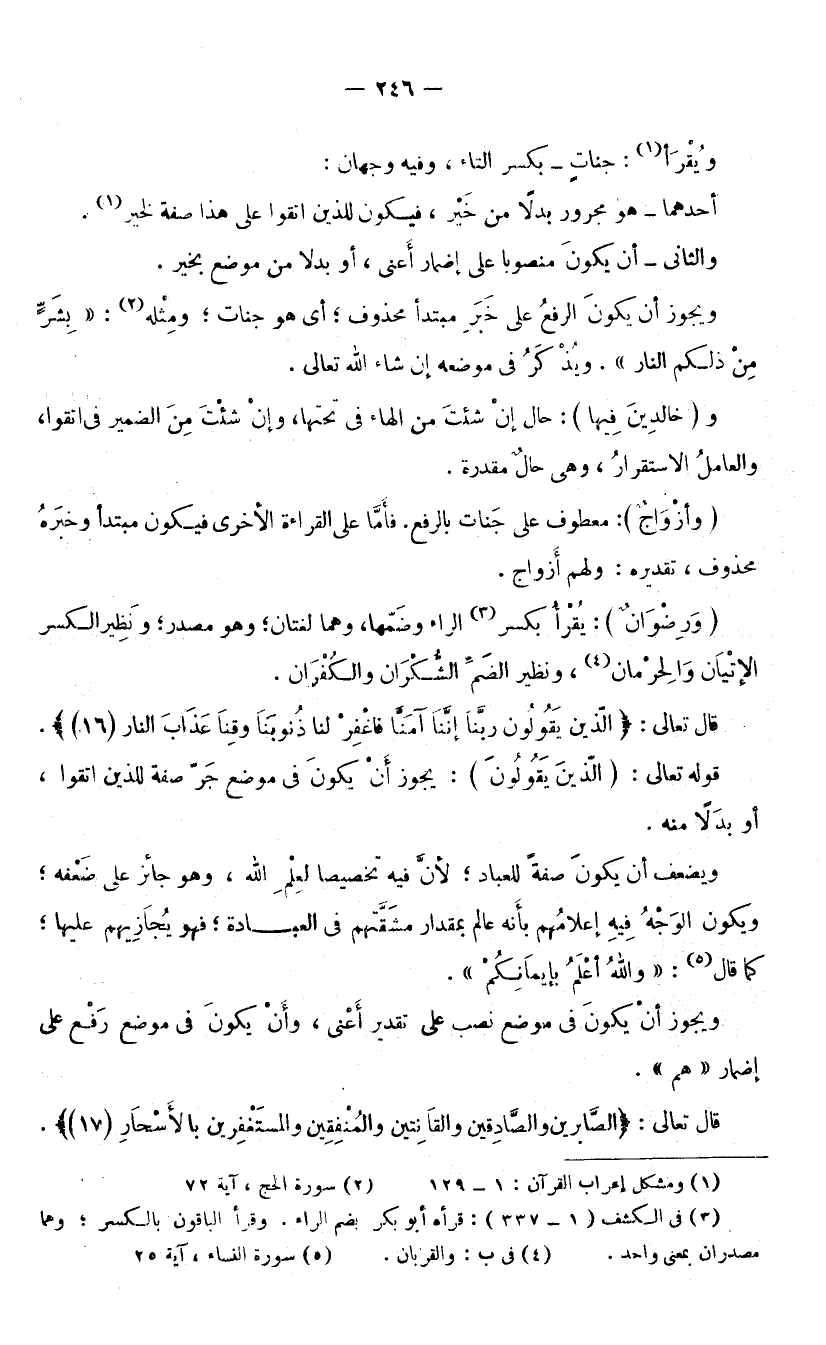 — ٢٤٦ —
ويُقْرَأ(١) : جناتٍ ـ بكسر التاء ، وفيه وجهان :
أحدهما ـ هو مجرور بدلًا من خَيْر ، فيكون للذين اتقوا على هذا صفة لخير(١) .
والثانى ـ أن يكونَ منصوبا على إضمار أَعنى ، أو بدلا من موضع بخير .
ويجوز أن يكونَ الرفعُ على خَبَرِ مبتدأ محذوف ؛ أى هو جنات ؛ ومِثْله(٢) : « بِشَرٍّ
مِنْ ذلكم النار » . ويُذْكَرُ فى موضعه إن شاء الله تعالى .
و ( خالدِينَ فِيها ) : حال إنْ شئتَ من الهاء فى تحتها، وإنْ شئْتَ مِنَ الضمير فى اتقوا،
والعاملُ الاستقرارُ ، وهى حالٌ مقدرة .
( وأزْوَاجٌ ): معطوف على جَنات بالرفع. فأَمَّا على القراءة الأخرى فيكون مبتدأ وخبَرهُ
محذوف ، تقديره : ولهم أَزواج .
( وَرِضْوَانٌ ) : يُقْرأُ بكسر(٣) الراء وضَمّها، وهما لغتان؛ وهو مصدر؛ ونَظِير الكسر
الإتْيَان وَالحِرْمان(٤) ، ونظير الضَمِّ الشُّكْرَان والكُفْرَان .
قال تعالى : ﴿ الّذين يَقُولُون ربَّنا إنَّنَا آمَنَّا فاغْفِرْ لنا ذُنوبَنَا وقِنَا عَذَابَ النار (١٦) ﴾ .
قوله تعالى : ( الّذينَ يَقُولُونَ ) : يجوز أنْ يكونَ فى موضع جَرّ صفة للذين اتقوا ،
أو بدَلًا منه .
ويضعف أن يكونَ صفةً للعباد ؛ لأنَّ فيه تخصيصا لعِلْمِ الله ، وهو جائز على ضَعْفه ؛
ويكون الوَجْهُ فِيهِ إعلامُهم بأنه عالم بمقدار مشَقَّتهم فى العبادة ؛ فهو يُجَازِيهم عليها ؛
كما قال(٥) : « واللهُ أعْلَمُ بإيمَانِكُمْ » .
ويجوز أنْ يكونَ فى موضع نصب على تقدير أَعْنى ، وأَنْ يكونَ فى موضع رَفْع على
إضمار « هم » .
قال تعالى : ﴿الصَّابرين والصَّادِقين والقَانِتين والمُنْفِقِين والمستَغْفِرين بالأَسْحَارِ (١٧)﴾ .
(١) ومشكل إعراب القرآن : ١ ـ ١٢٩ (٢) سورة الحج ، آية ٧٢
(٣) فى الكشف ( ١ ـ ٣٣٧ ) : قرأه أبو بكر بضم الراء . وقرأ الباقون بالكسر ؛ وهما
مصدران بمعنى واحد . (٤) فى ب : والقربان . (٥) سورة النساء ، آية ٢٥